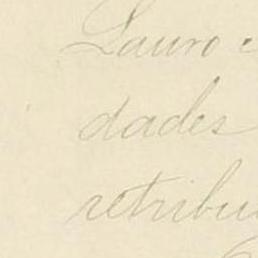 Lauro e
dades
retribui